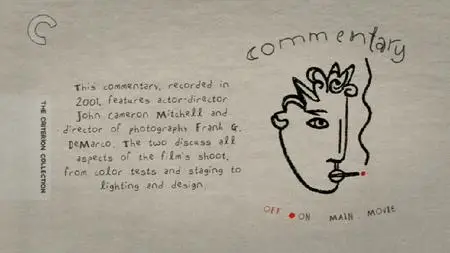 commentary
This commentary, recorded in
2001, features actor-director
John Cameron Mitchell and
director of photography Frank G.
DeMarco. The two discuss all
aspects of the film's shoot,
from color tests and staging to
lighting and design.
THE CRITERION COLLECTION
OFF ON MAIN MOVIE